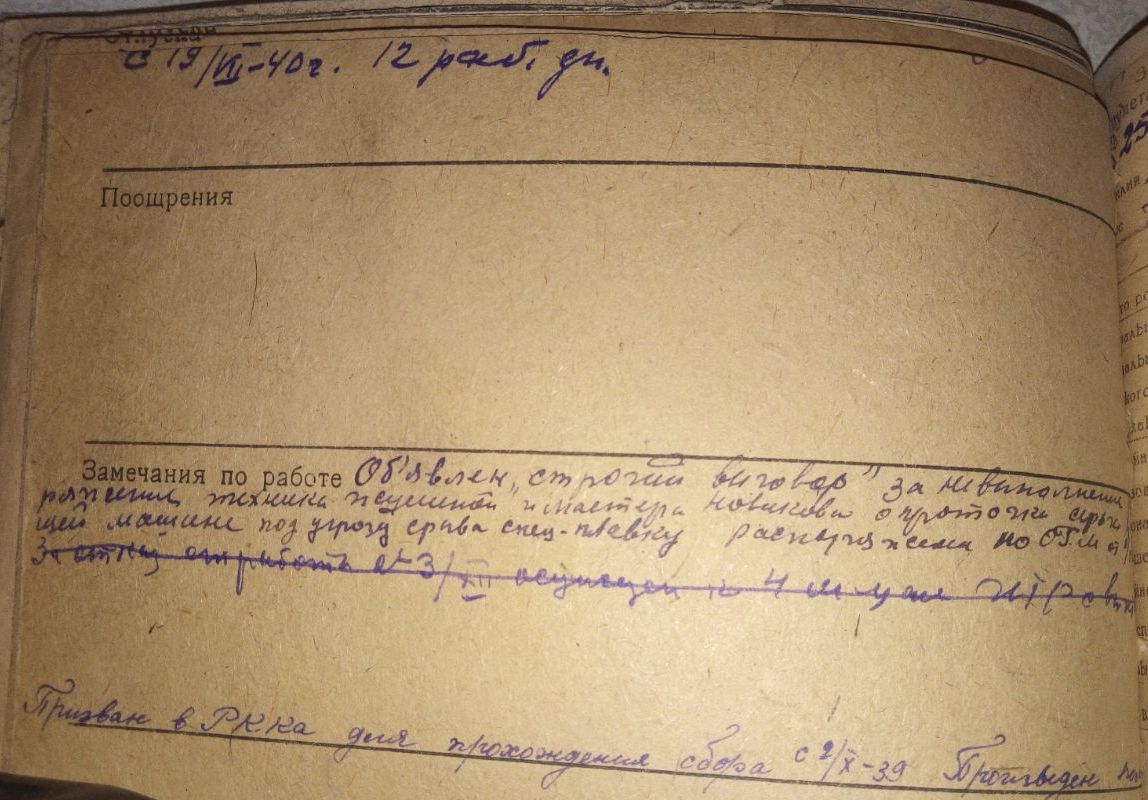 Отпуска
с 19/VII-40г. 12 раб. дн.
Поощрения
Замечания по работе Об'явлен „строгий выговор" за невыполнение
ряжения техника и мастера Новикова о проточки
щей машине под угрозу срыва спец-плавку распоряжение по ОГМ от
За отказ от работы от 3/XII осужден к 4 м-цам ИТР с выч
Призван в РККА для прохождения сбора с 2/X-39 Произведен